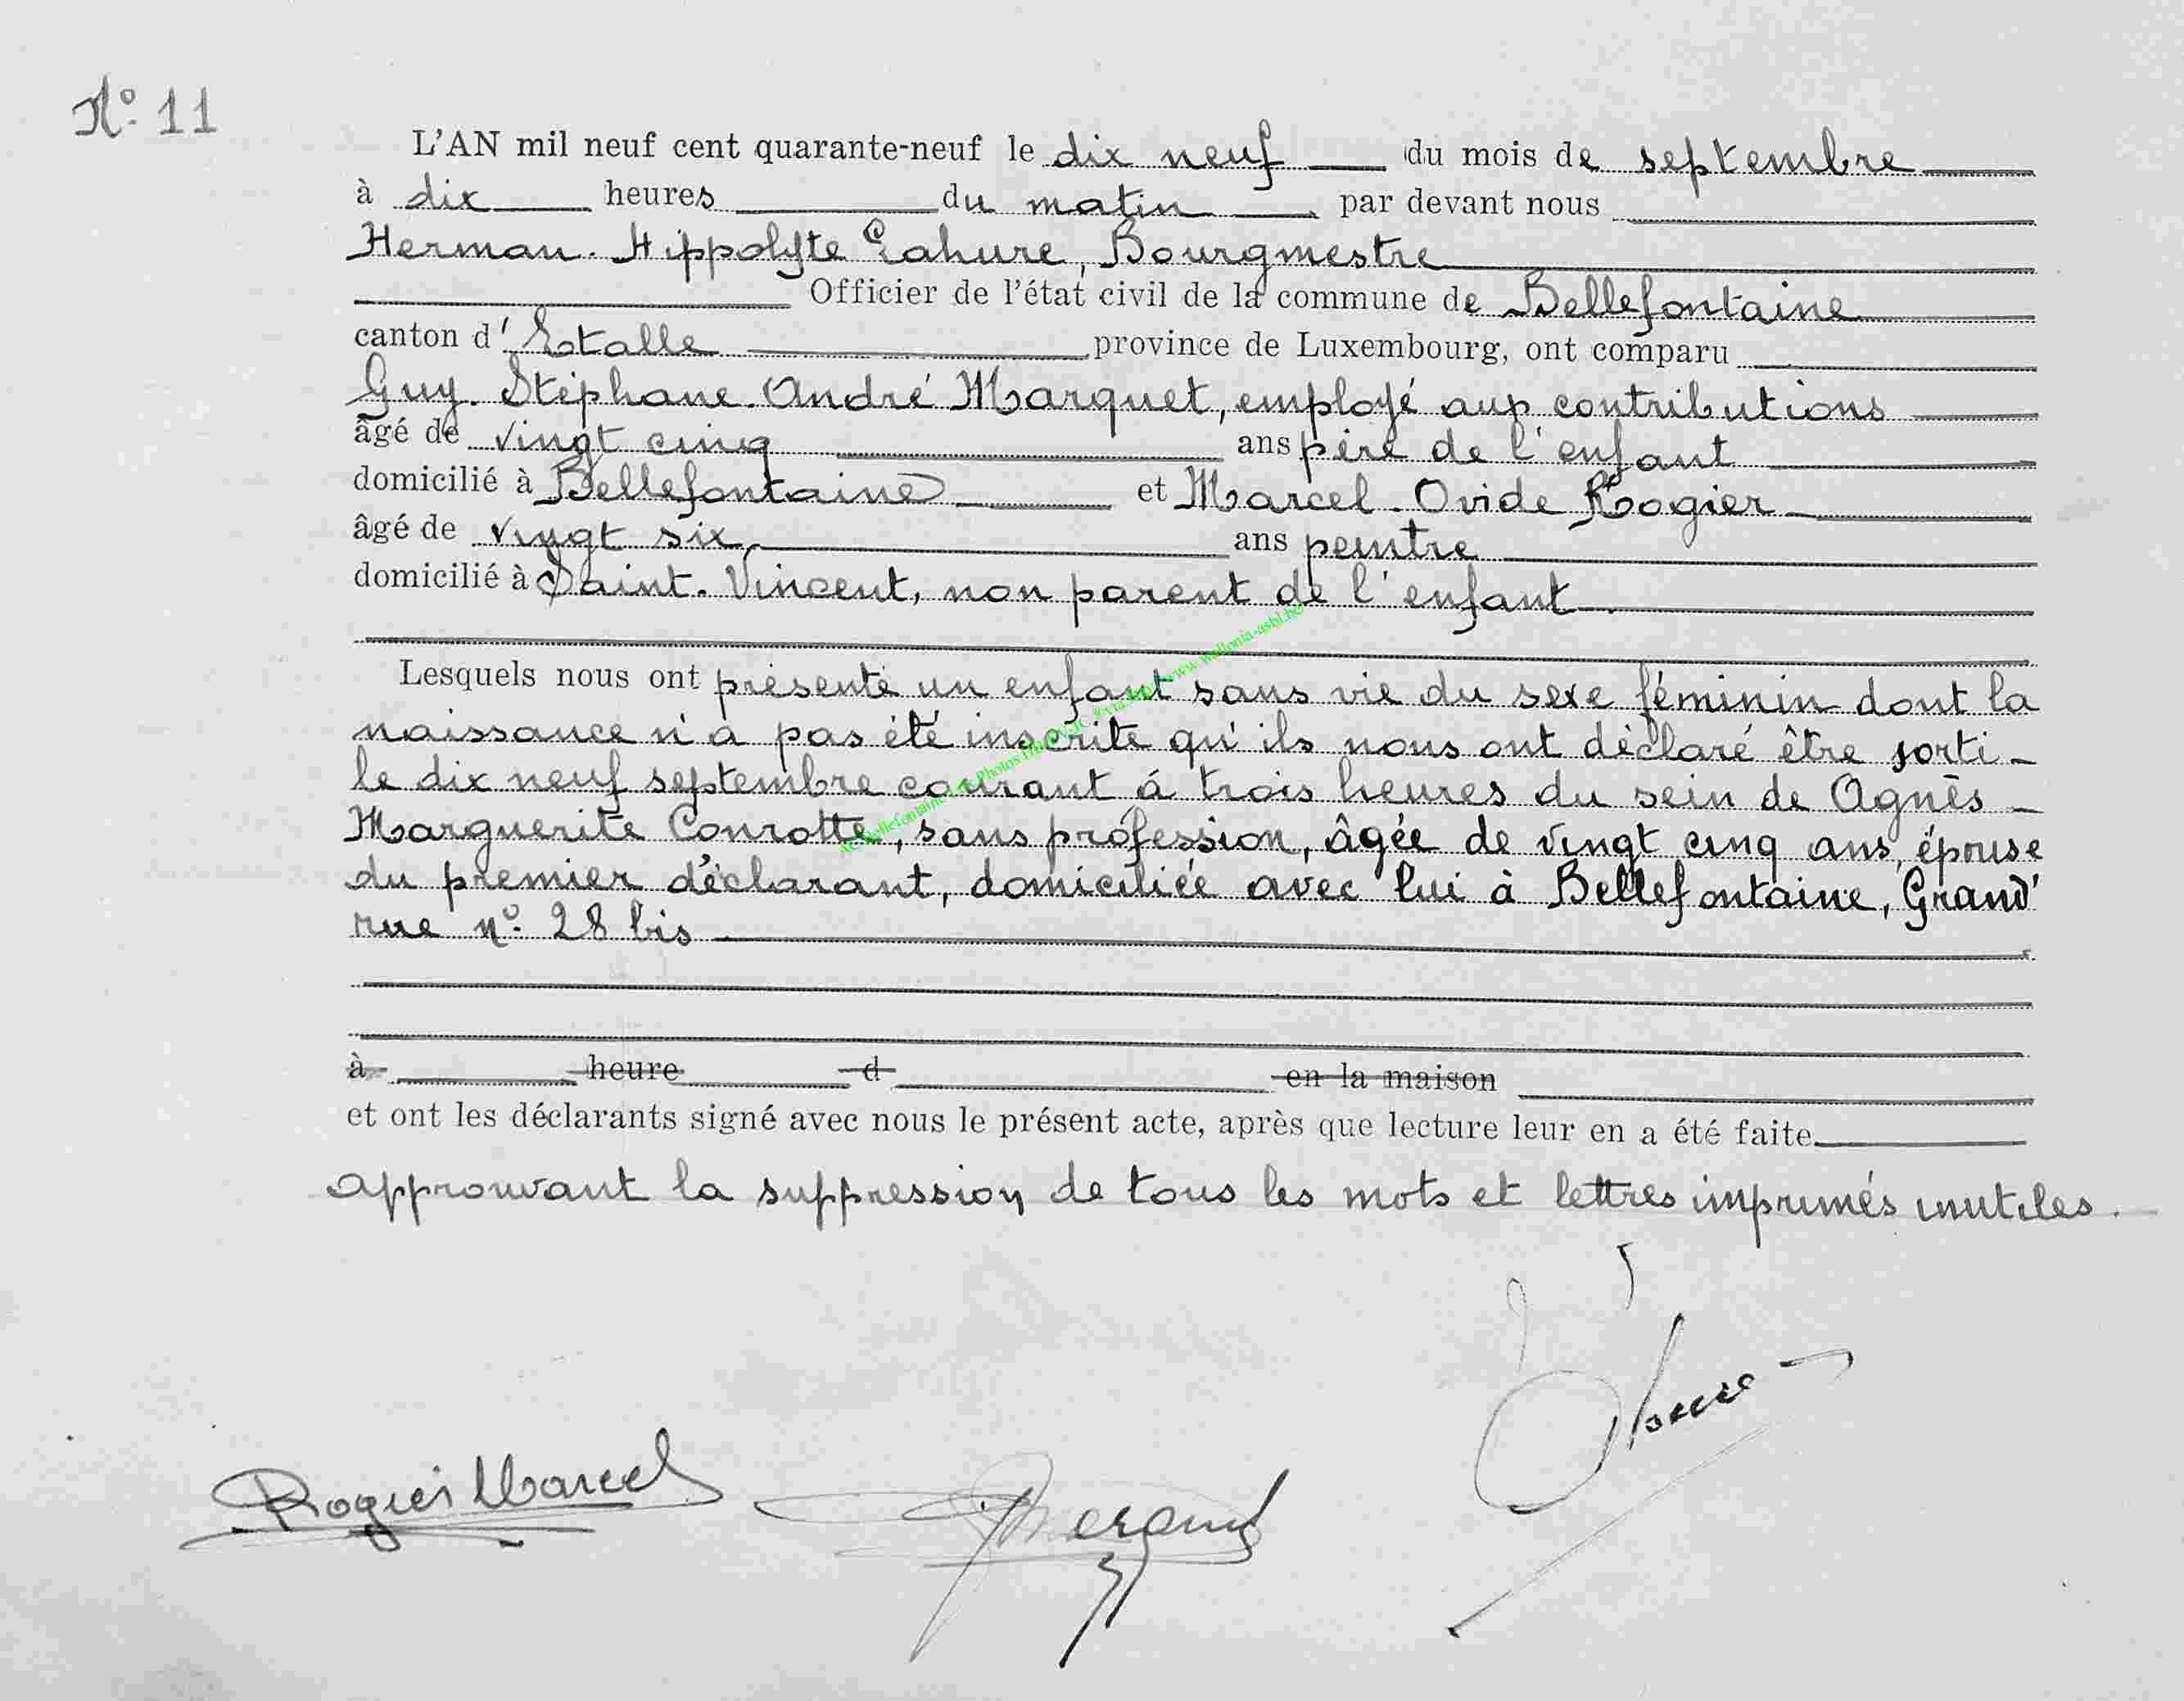 N° 11
L'AN mil neuf cent quarante-neuf le dix neuf du mois de septembre
à dix heures du matin par devant nous
Herman. Hippolyte Lahure, Bourgmestre
Officier de l'état civil de la commune de Bellefontaine
canton d'Etalle province de Luxembourg, ont comparu
Guy. Stéphane. André Marquet, employé aux contributions
âgé de vingt cinq ans père de l'enfant
domicilié à Bellefontaine et Marcel. Ovide Rogier
âgé de vingt six ans peintre
domicilié à Saint. Vincent, non parent de l'enfant.
Lesquels nous ont présenté un enfant sans vie du sexe féminin dont la
naissance n'a pas été inscrite qu'ils nous ont déclaré être sorti
le dix neuf septembre courant á trois heures du sein de Agnès
Marguerite Conrotte, sans profession, âgée de vingt cinq ans, épouse
du premier déclarant, domiciliée avec lui à Bellefontaine, Grand'
rue n° 28 bis
à heure d en la maison
et ont les déclarants signé avec nous le présent acte, après que lecture leur en a été faite
approuvant la suppression de tous les mots et lettres imprimés inutiles.
Rogier Marcel